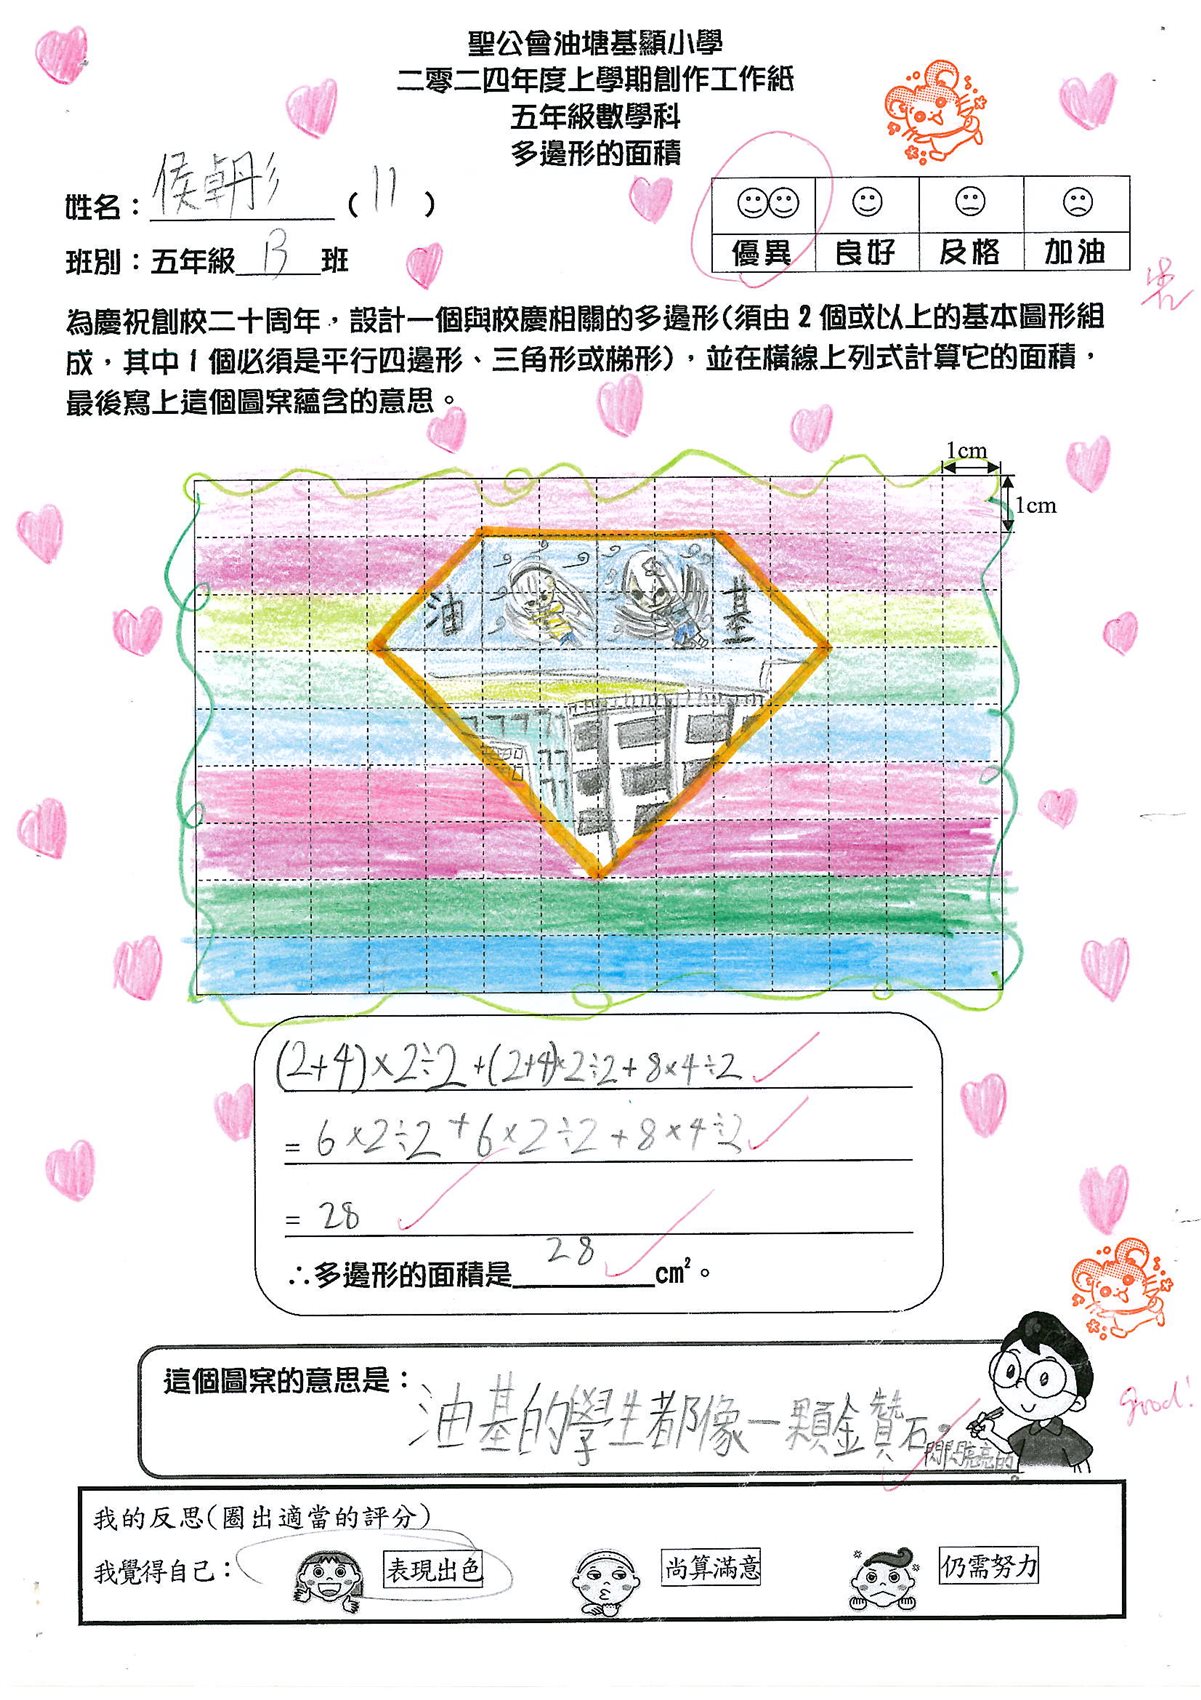 聖公會油塘基顯小學
二零二四年度上學期創作工作紙
五年級數學科
多邊形的面積
姓名：侯卓彤（11）
班別：五年級 B 班
優異 良好 及格 加油
為慶祝創校二十周年，設計一個與校慶相關的多邊形(須由 2 個或以上的基本圖形組
成，其中 1 個必須是平行四邊形、三角形或梯形)，並在橫線上列式計算它的面積，
最後寫上這個圖案蘊含的意思。
1cm
1cm
油 基
(2+4)×2÷2+(2+4)×2÷2+8×4÷2
= 6×2÷2+6×2÷2+8×4÷2
= 28
∴多邊形的面積是 28 cm²。
這個圖案的意思是：
油基的學生都像一顆金鑽石，
閃閃亮亮的。
good!
我的反思(圈出適當的評分)
我覺得自己： 表現出色 尚算滿意 仍需努力